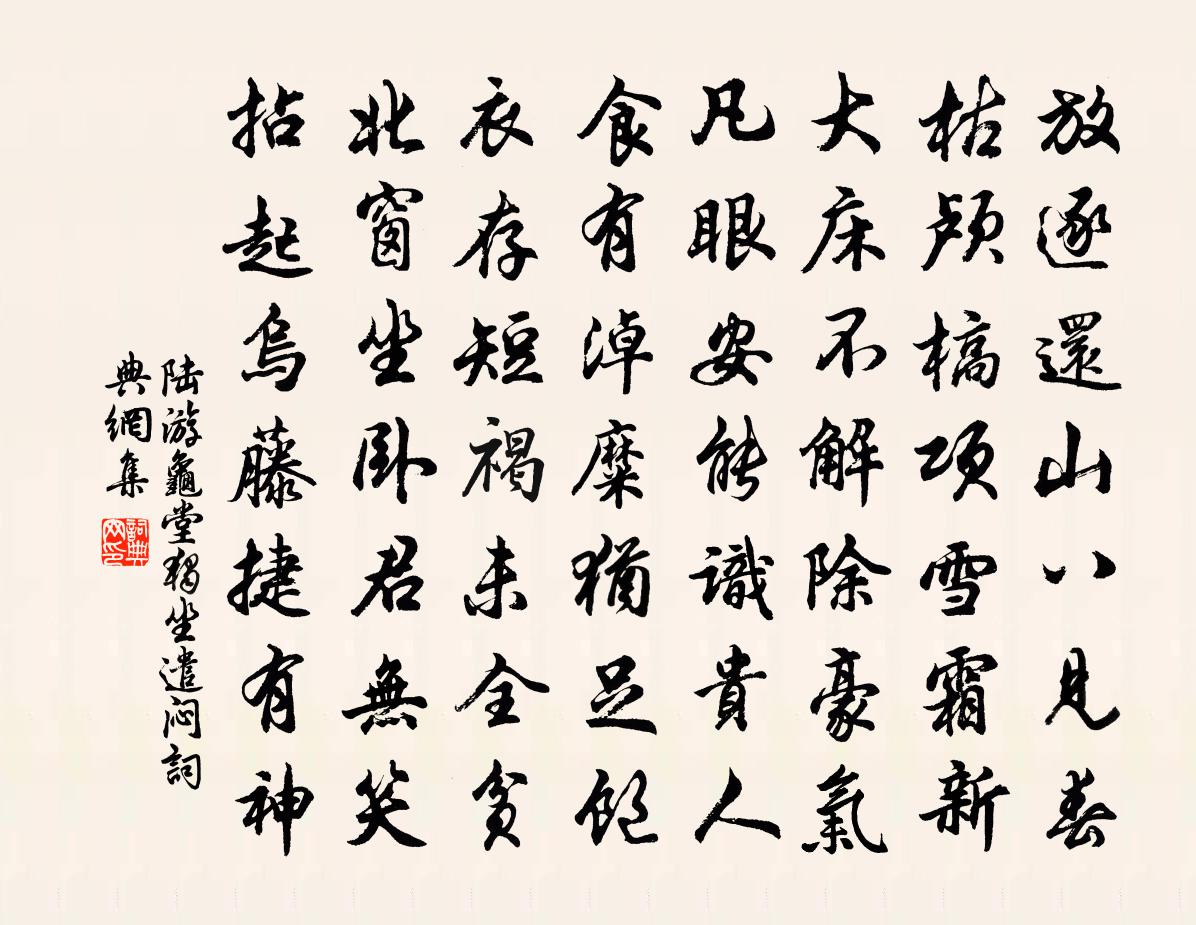 放逐還山八見春
枯颅槁項雪霜新
大床不解除豪氣
凡眼安能識貴人
食有淖糜猶足飽
衣存短褐未全貧
北窗坐卧君無笑
拈起烏藤捷有神
陆游龜堂獨坐遣闷詞
典網集
詞典
网印